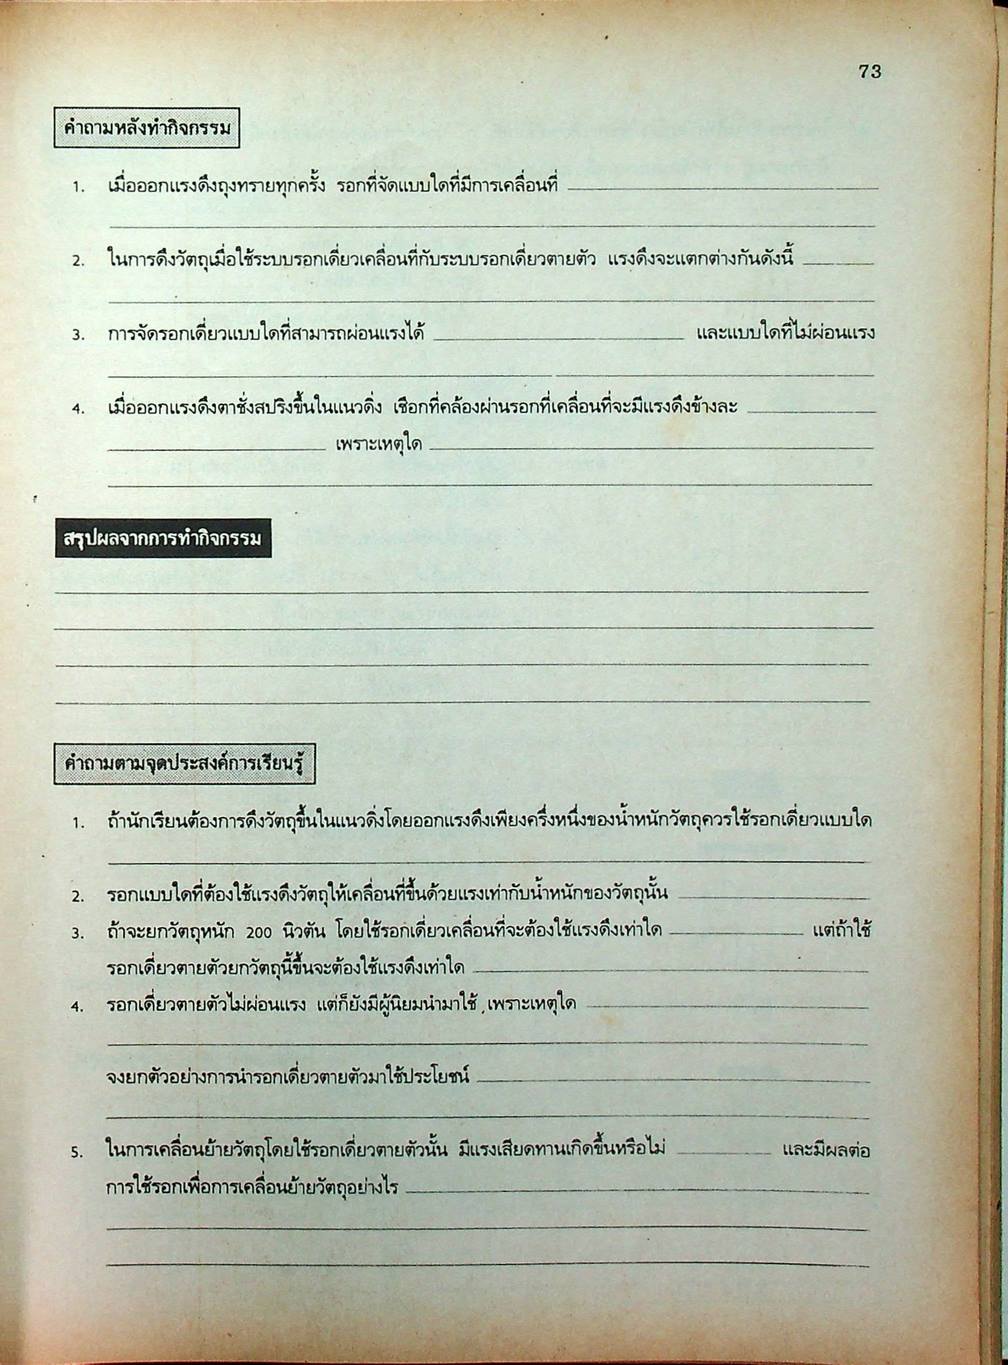 73
คำถามหลังทำกิจกรรม
1. เมื่อออกแรงดึงถุงทรายทุกครั้ง รอกที่จัดแบบใดที่มีการเคลื่อนที่
2. ในการดึงวัตถุเมื่อใช้ระบบรอกเดี่ยวเคลื่อนที่กับระบบรอกเดี่ยวตายตัว แรงดึงจะแตกต่างกันดังนี้
3. การจัดรอกเดี่ยวแบบใดที่สามารถผ่อนแรงได้ และแบบใดที่ไม่ผ่อนแรง
4. เมื่อออกแรงดึงตาชั่งสปริงขึ้นในแนวดิ่ง เชือกที่คล้องผ่านรอกที่เคลื่อนที่จะมีแรงดึงข้างละ
เพราะเหตุใด
สรุปผลจากการทำกิจกรรม
คำถามตามจุดประสงค์การเรียนรู้
1. ถ้านักเรียนต้องการดึงวัตถุขึ้นในแนวดิ่งโดยออกแรงดึงเพียงครึ่งหนึ่งของน้ำหนักวัตถุควรใช้รอกเดี่ยวแบบใด
2. รอกแบบใดที่ต้องใช้แรงดึงวัตถุให้เคลื่อนที่ขึ้นด้วยแรงเท่ากับน้ำหนักของวัตถุนั้น
3. ถ้าจะยกวัตถุหนัก 200 นิวตัน โดยใช้รอกเดี่ยวเคลื่อนที่จะต้องใช้แรงดึงเท่าใด แต่ถ้าใช้
รอกเดี่ยวตายตัวยกวัตถุนี้ขึ้นจะต้องใช้แรงดึงเท่าใด
4. รอกเดี่ยวตายตัวไม่ผ่อนแรง แต่ก็ยังมีผู้นิยมนำมาใช้ เพราะเหตุใด
จงยกตัวอย่างการนำรอกเดี่ยวตายตัวมาใช้ประโยชน์
5. ในการเคลื่อนย้ายวัตถุโดยใช้รอกเดี่ยวตายตัวนั้น มีแรงเสียดทานเกิดขึ้นหรือไม่ และมีผลต่อ
การใช้รอกเพื่อการเคลื่อนย้ายวัตถุอย่างไร